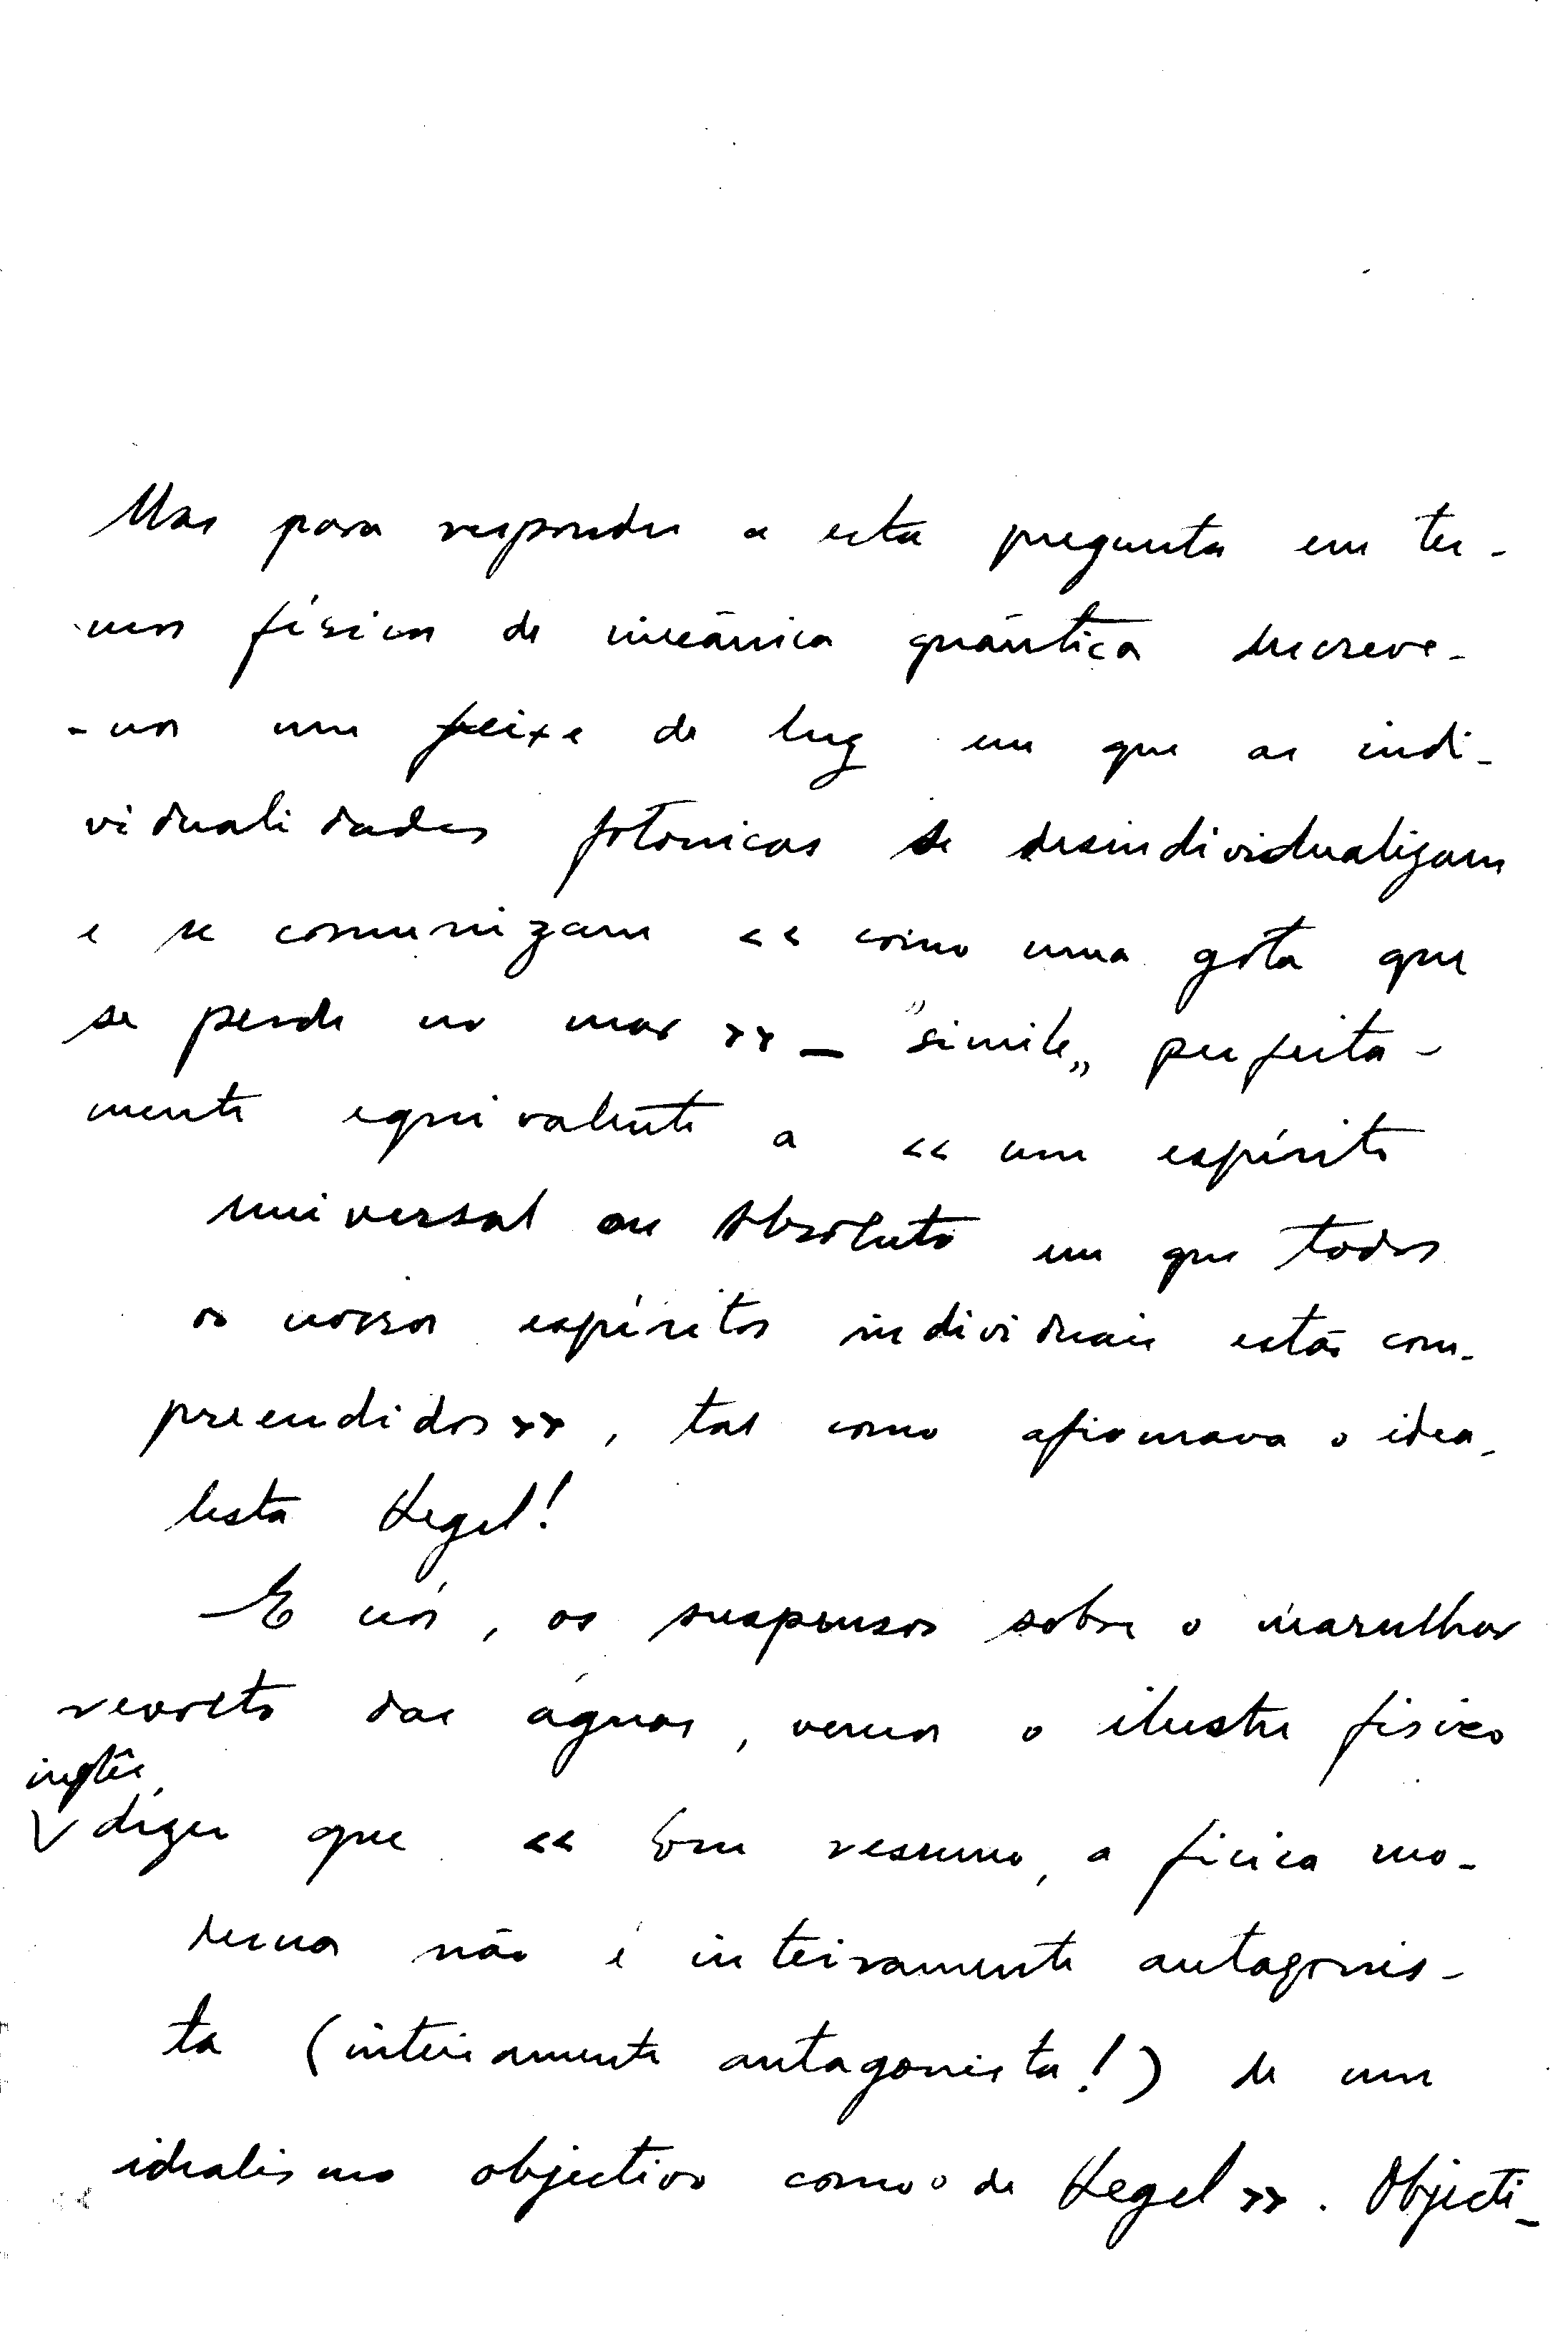 Mas para responder a esta pregunta em ter-
mos físicos de mecânica quântica descreve-
-nos um feixe de luz em que as indi-
vidualidades fotonicas se desindividualizam
e se comunizam << como uma gota que
se perde no mar >> — "simile„ perfeita-
mente equivalente a << um espírito
universal ou Absoluto em que todos
os nossos espíritos individuais estão com-
preendidos >>, tal como afirmava o idea-
lista Hegel!
E nós, os suspensos sobre o marulhar
revolto das águas, vemos o ilustre fisico
inglês,
dizer que << Em resumo, a fisica mo-
derna não é inteiramente antagonis-
ta (inteiramente antagonista!) de um
idealismo objectivo como o de Hegel >>. Objecti-